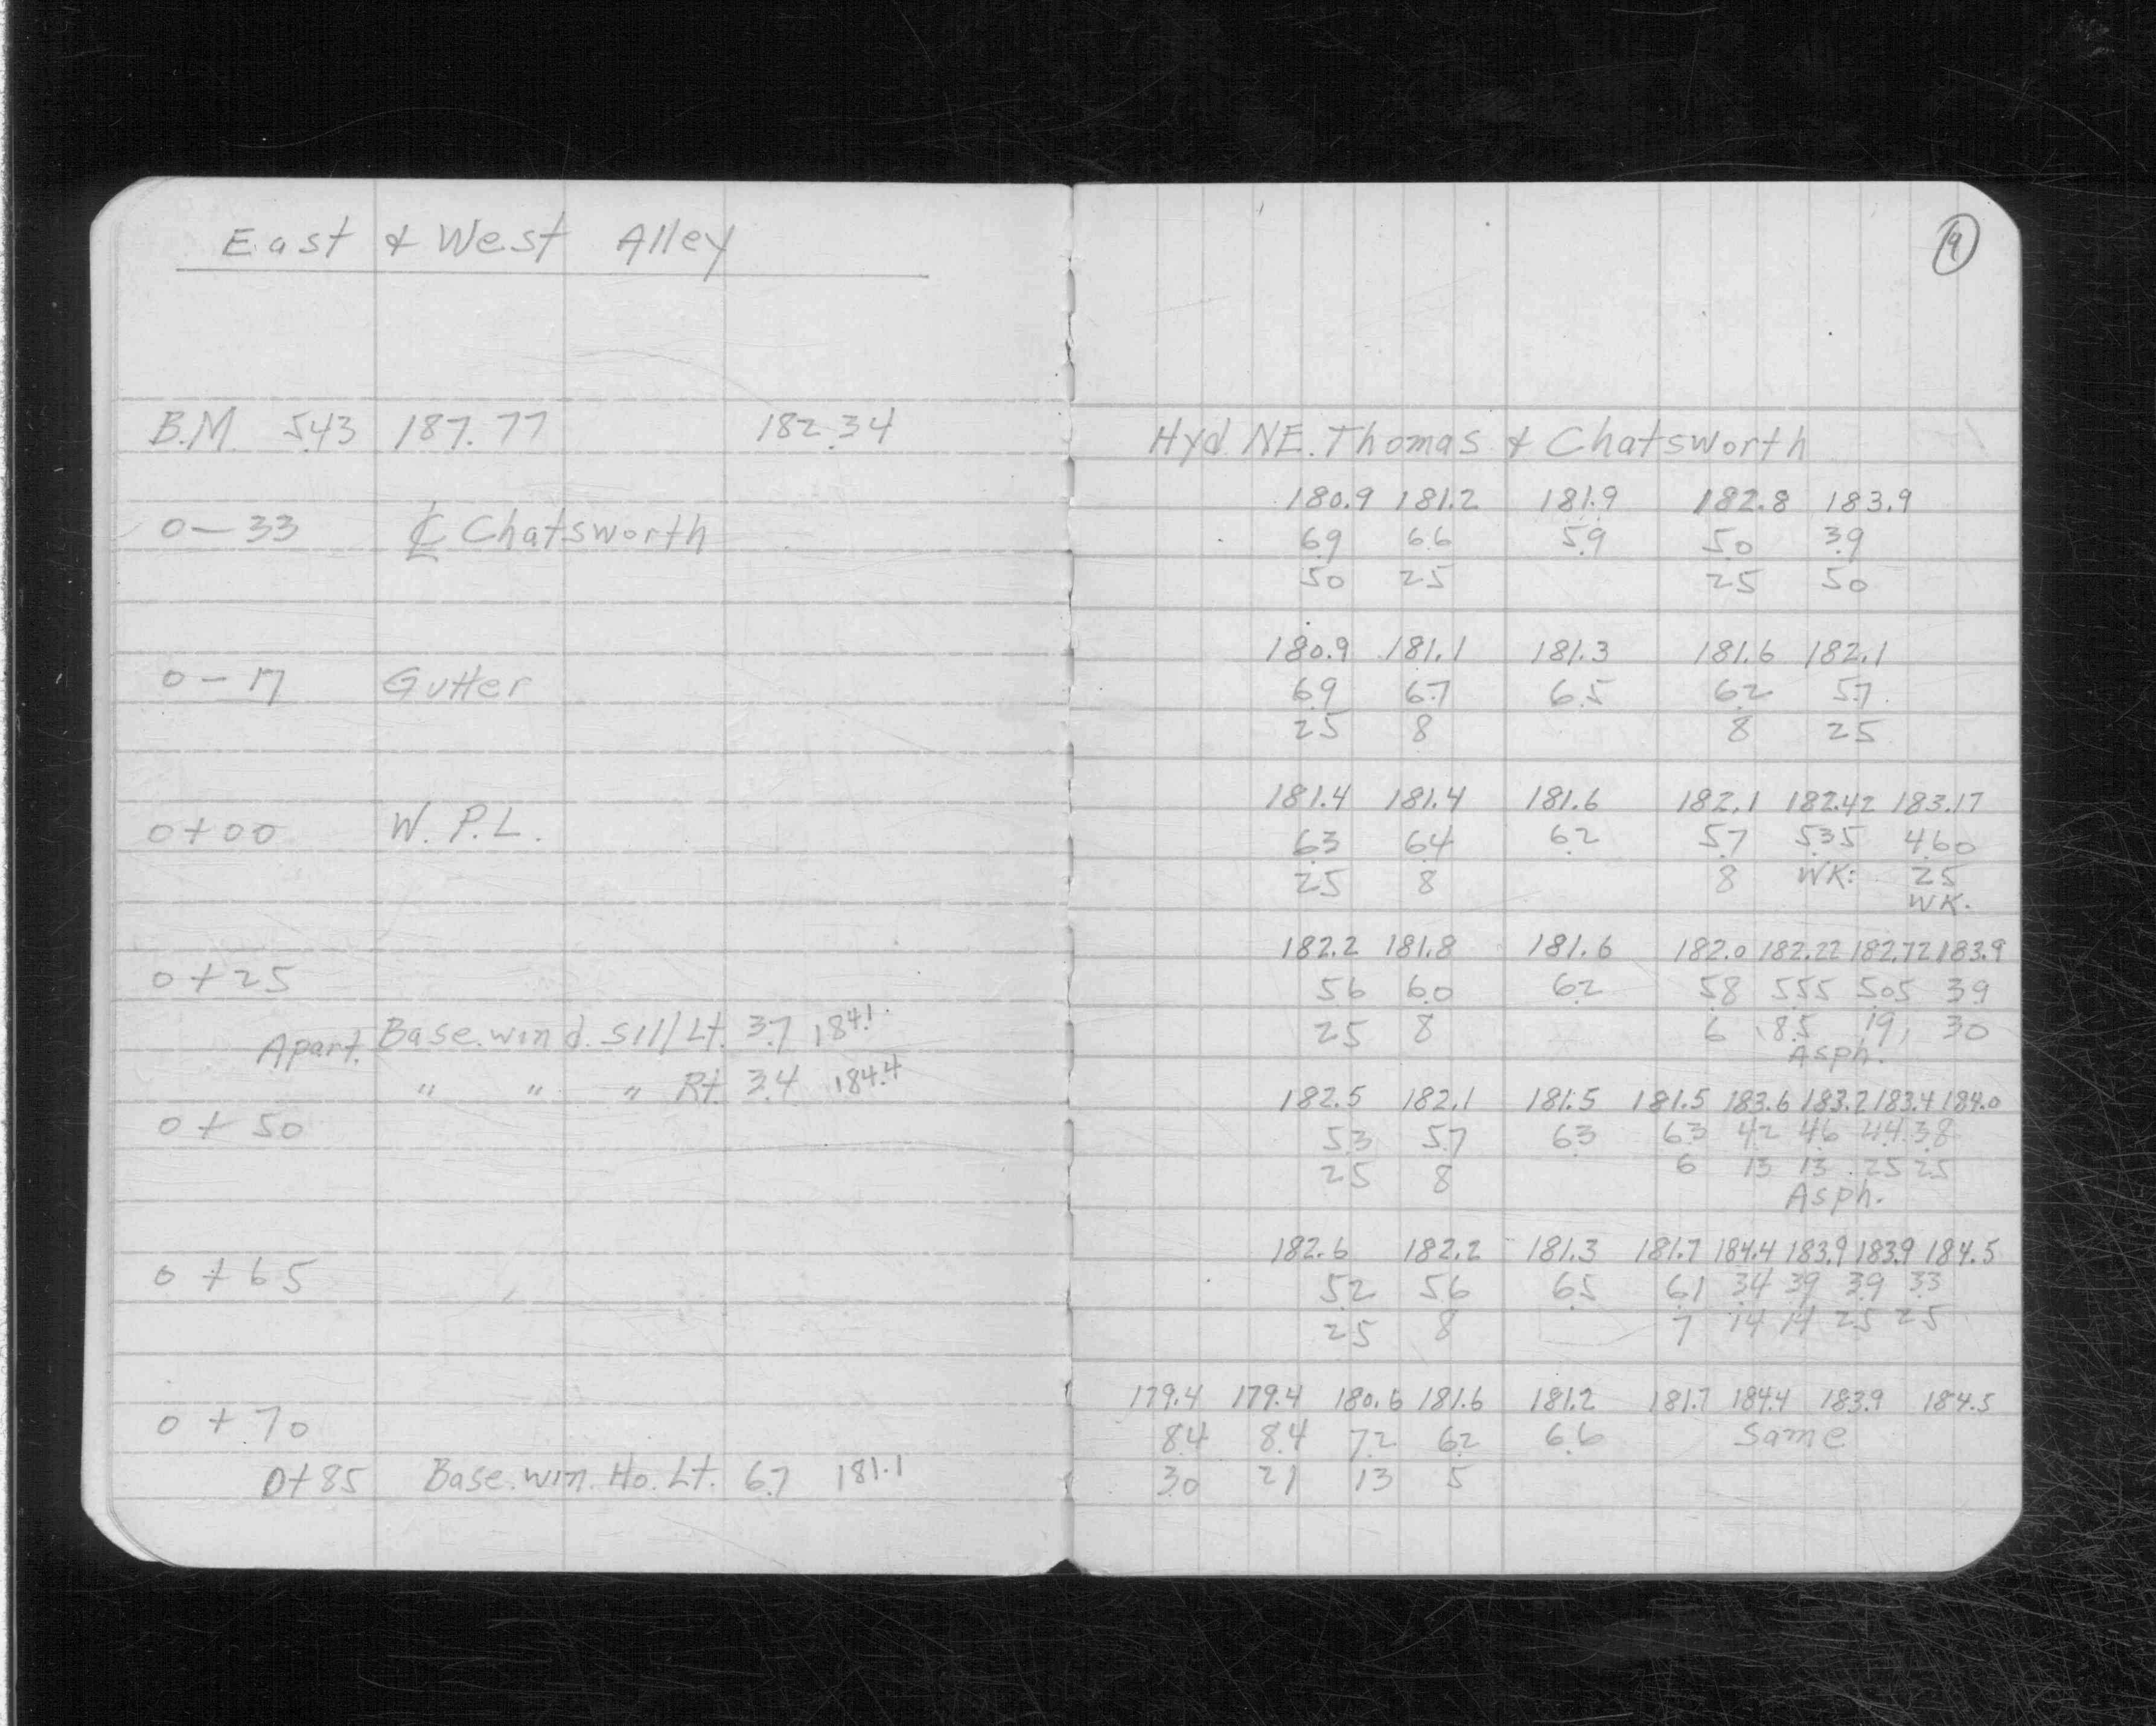 East & West Alley
B.M. 5.43 187.77 182.34
0-33 ℄ Chatsworth
0-17 Gutter
0+00 W. P.L.
0+25
Apart. Base. wind. sill Lt. 3.7 184.1
" " " Rt. 3.4 184.4
0+50
0+65
0+70
0+85 Base. win. Ho. Lt. 6.7 181.1
9
Hyd. NE. Thomas & Chatsworth
180.9 181.2 181.9 182.8 183.9
6.9 6.6 5.9 5.0 3.9
50 25 25 50
180.9 181.1 181.3 181.6 182.1
6.9 6.7 6.5 6.2 5.7
25 8 8 25
181.4 181.4 181.6 182.1 182.42 183.17
6.3 6.4 6.2 5.7 5.35 4.60
25 8 8 WK: 25
WK.
182.2 181.8 181.6 182.0 182.22 182.72 183.9
5.6 6.0 6.2 5.8 5.55 5.05 3.9
25 8 6 8.5 19 30
Asph.
182.5 182.1 181.5 181.5 183.6 183.2 183.4 184.0
5.3 5.7 6.3 6.3 4.2 4.6 4.4 3.8
25 8 6 13 13 25 25
Asph.
182.6 182.2 181.3 181.7 184.4 183.9 183.9 184.5
5.2 5.6 6.5 6.1 3.4 3.9 3.9 3.3
25 8 7 14 14 25 25
179.4 179.4 180.6 181.6 181.2 181.7 184.4 183.9 184.5
8.4 8.4 7.2 6.2 6.6 Same
30 21 13 5